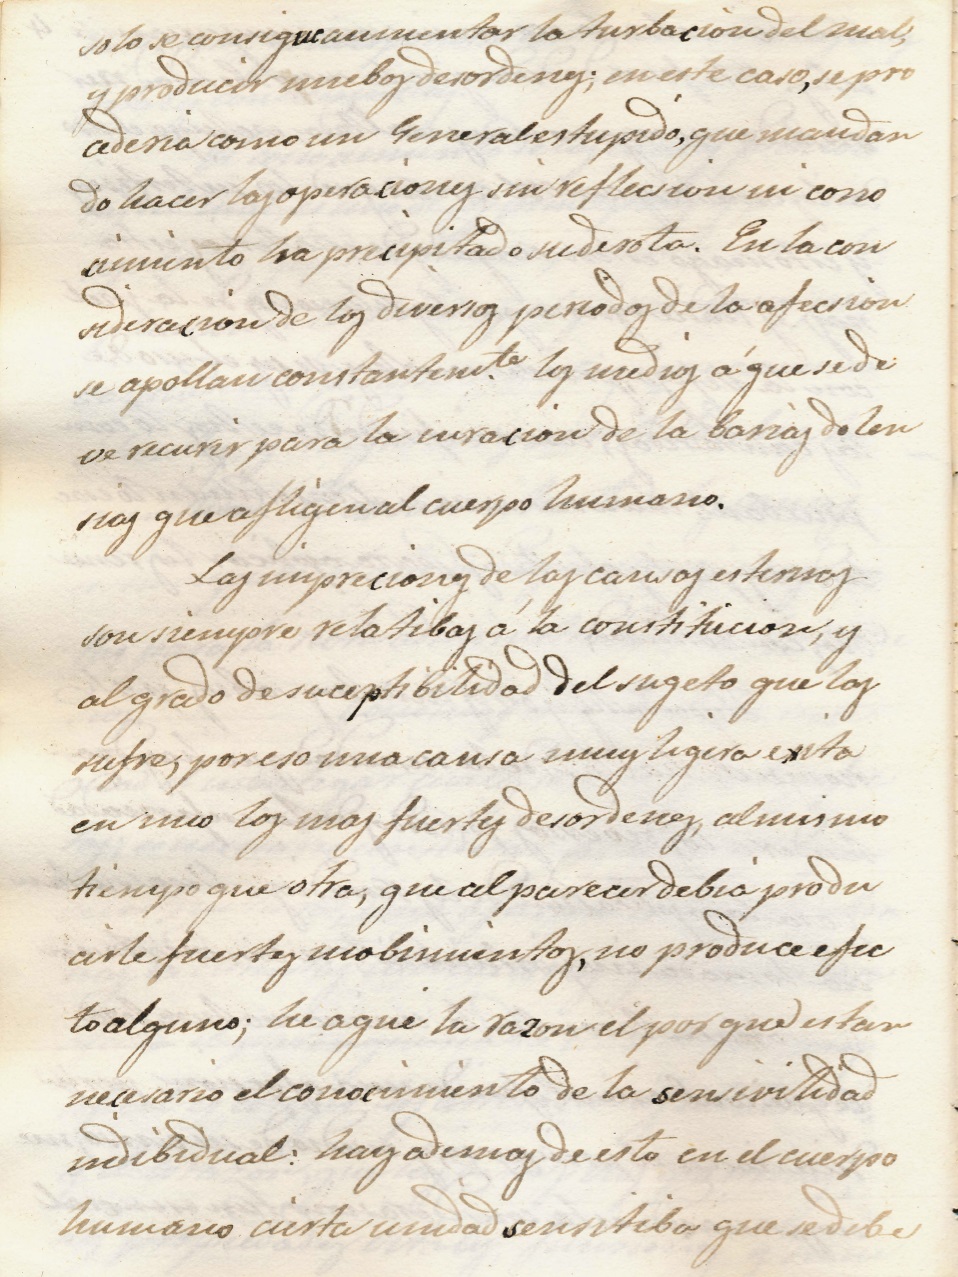 solo se consigue aumentar la turbacion del mal,
y producir nuebos desordenes; en este caso, se pro
cederia como un General estupido, que mandan
do hacer las operaciones sin reflecsion ni cono
cimiento ha precipitado su derota. En la con
sideracion de los diversos periodos de la afecsion
se apollan constantemte los medios á que se de
ve recurir para la curacion de la barias dolen
sias que afligen al cuerpo humano.
Las impreciones de las causas esternas
son siempre relatibas á la constitucion, y
al grado de suceptibilidad del sugeto que las
sufre, por eso una causa muy ligera exita
en uno los mas fuertes desordenes, al mismo
tiempo que otra, que al parecer debia produ
cirle fuertes mobimientos, no produce efec
to alguno; he aqui la razon el por que es tan
necesario el conocimiento de la sensivilidad
indibidual: hay ademas de esto en el cuerpo
humano cierta unidad sensitiba que se debe